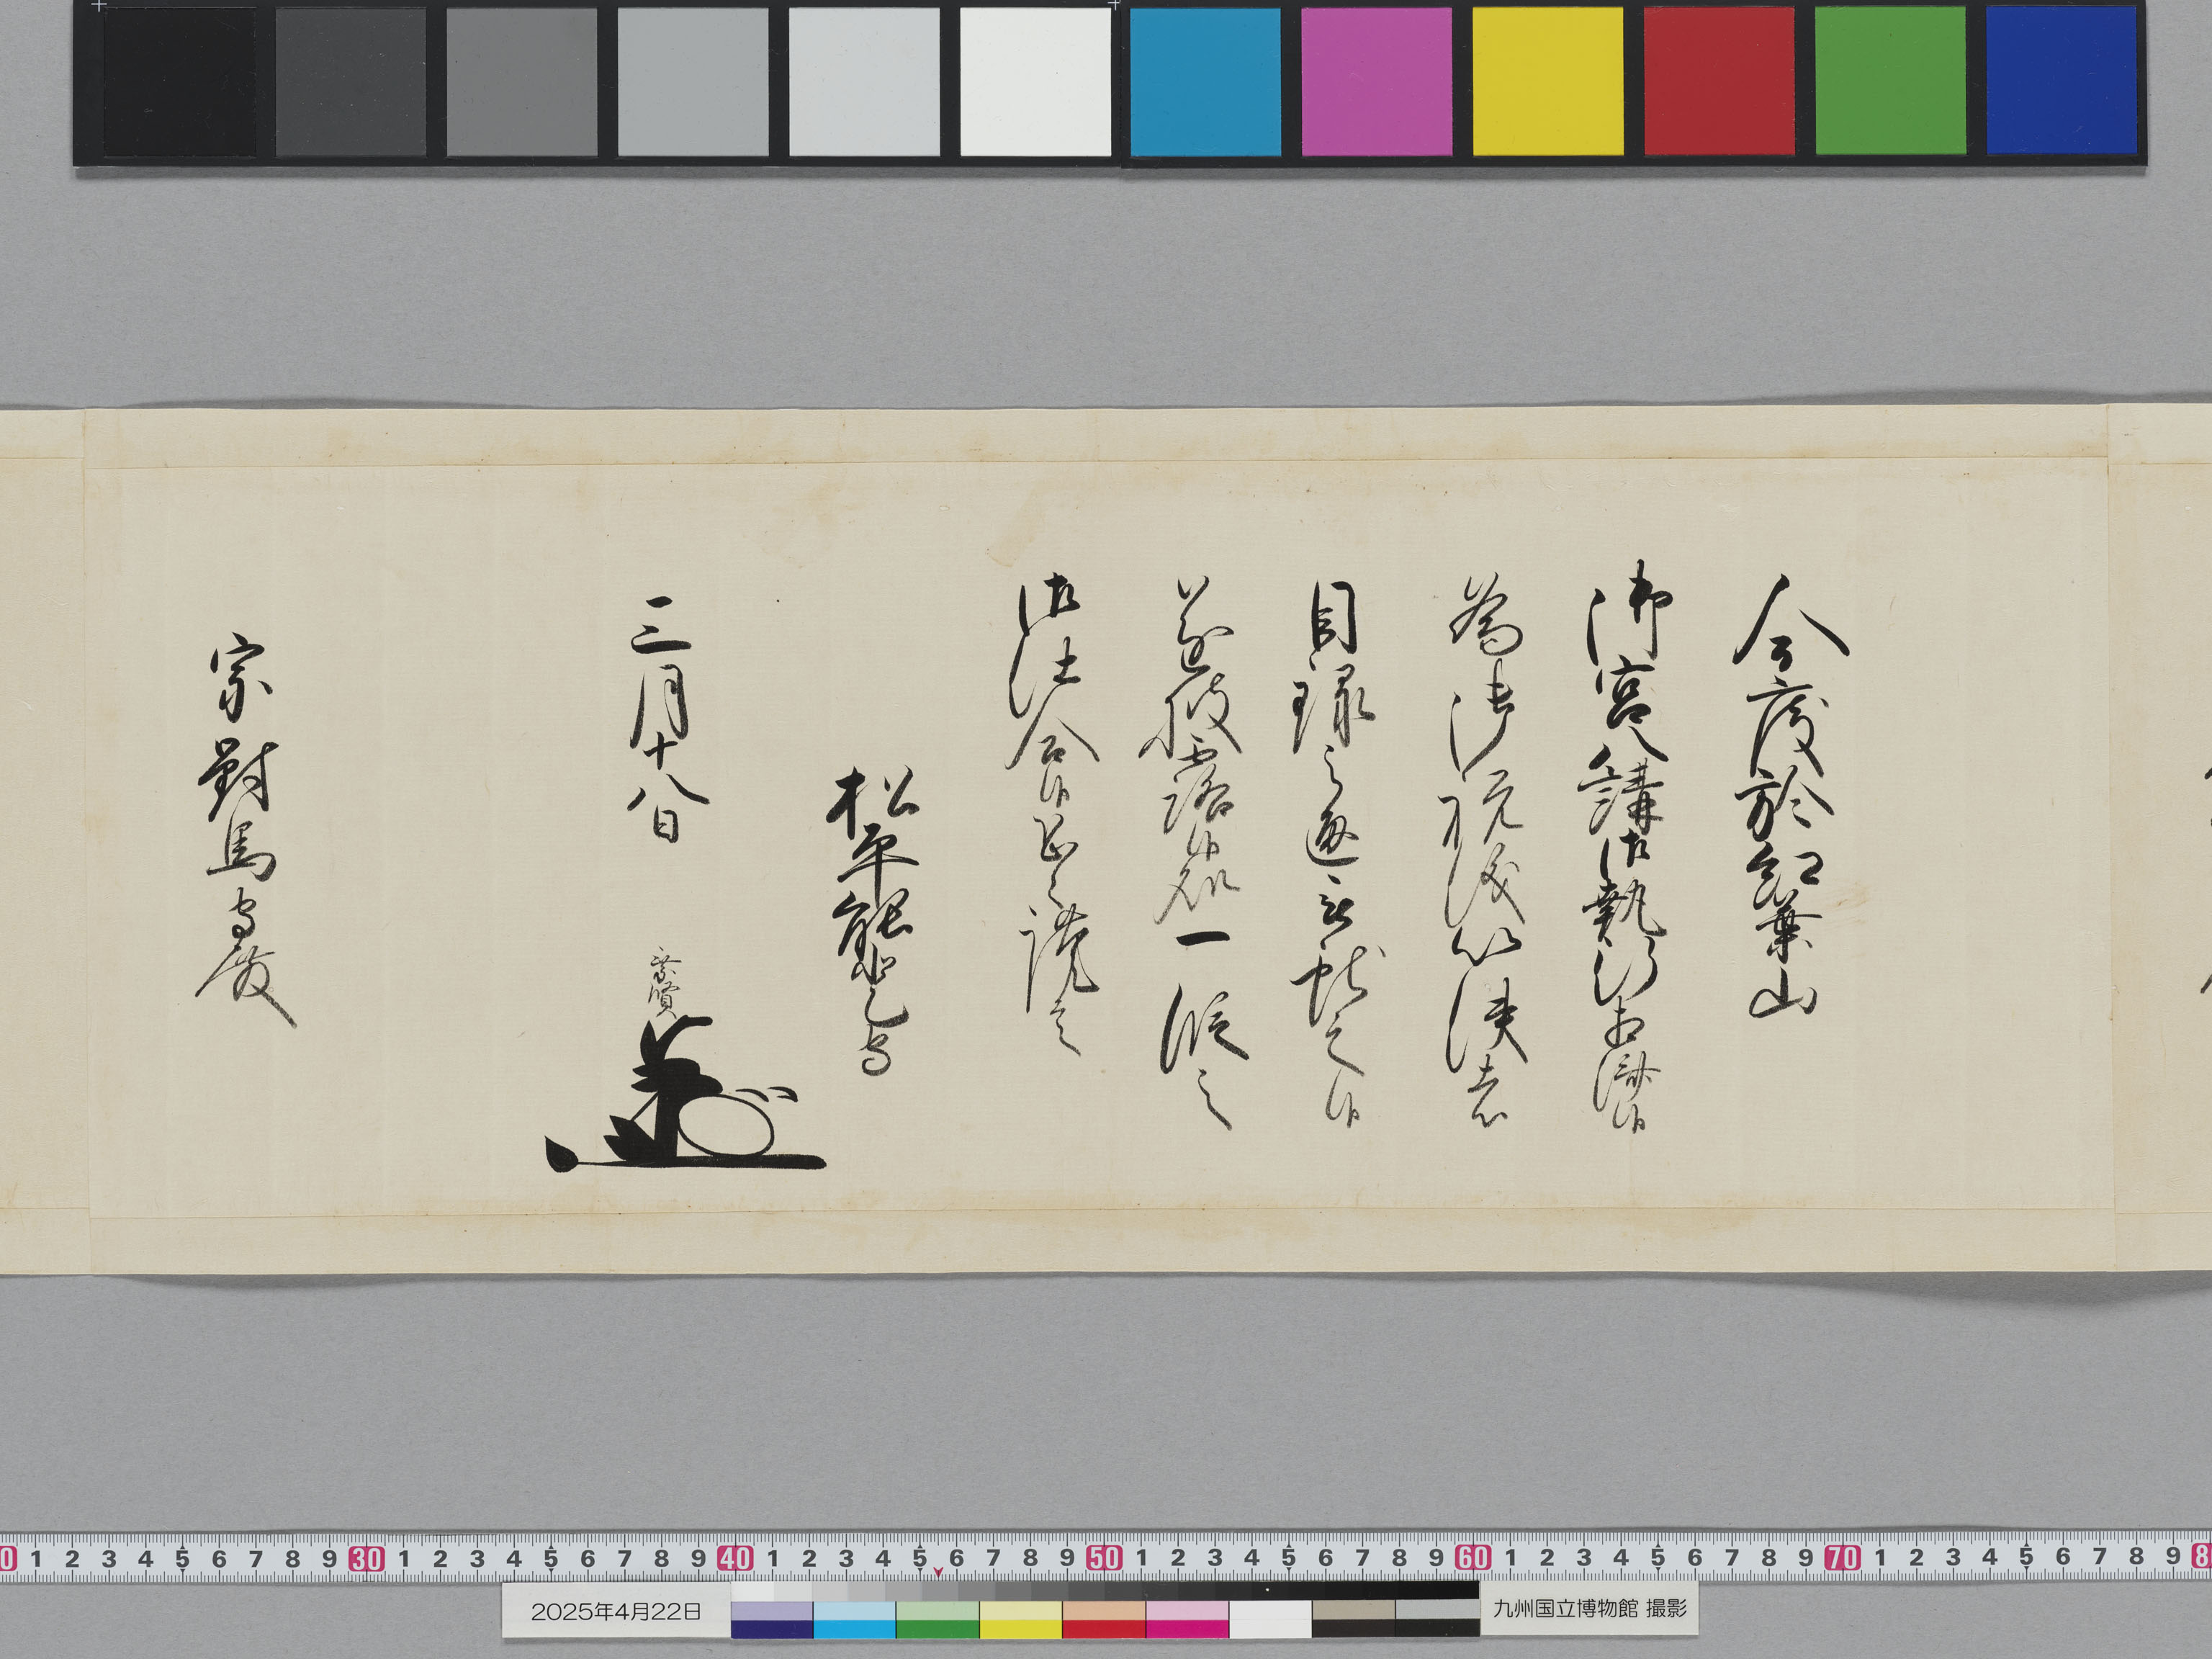 今度於紅葉山
御宮八講御執行相濟候
為御祝儀以使者
目録之通被献之候
遂披露候処一段之
御仕合候恐々謹言
松平能登守
三月十八日 乗賢
宗對馬守殿
0 1 2 3 4 5 6 7 8 9 30 1 2 3 4 5 6 7 8 9 40 1 2 3 4 5 6 7 8 9 50 1 2 3 4 5 6 7 8 9 60 1 2 3 4 5 6 7 8 9 70 1 2 3 4 5 6 7 8 9 8
2025年4月22日
九州国立博物館 撮影